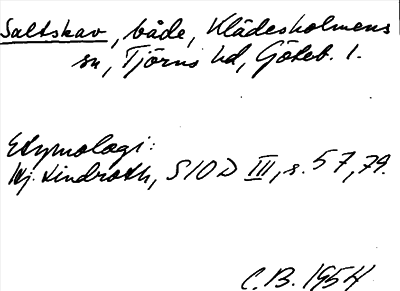 Saltskav, både, Klädesholmens
sn, Tjörns hd, Göteb. l.
Etymologi:
Hj. Lindroth, SIOD III, s. 57, 79.
C.B. 1954